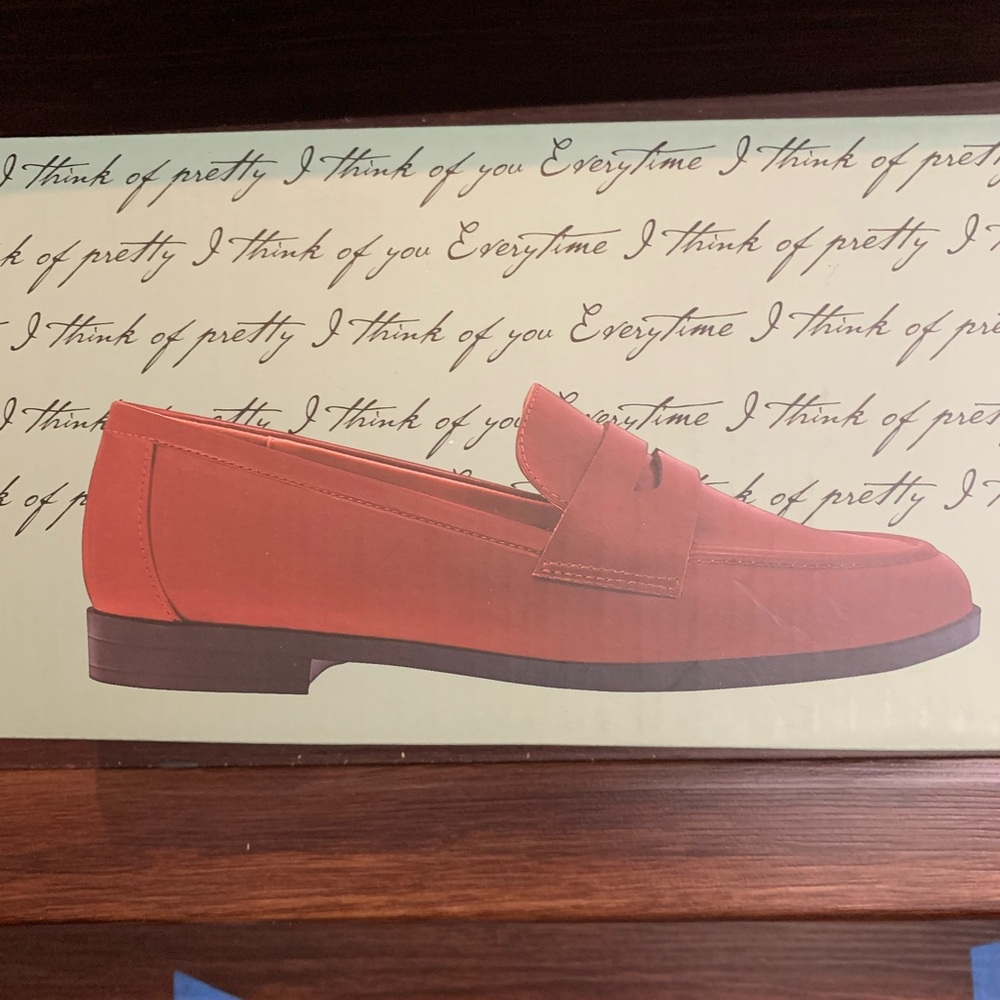 I think of pretty I think of you Everytime I think of pretty
k of pretty I think of you Everytime I think of pretty I
I think of pretty I think of you Everytime I think of pre
I think etty I think of you verytime I think of pret
k of p k of pretty I